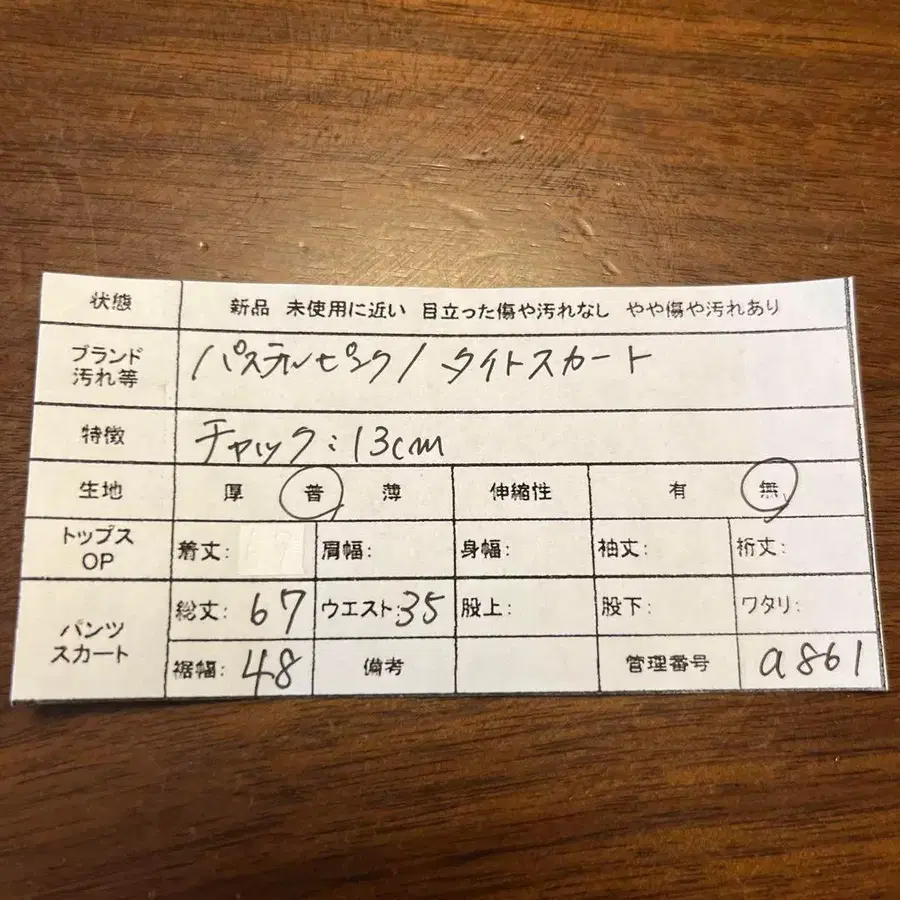 状態 新品 未使用に近い 目立った傷や汚れなし やや傷や汚れあり
ブランド 汚れ等 /パステルピンク/ タイトスカート
特徴 チャック:13cm
生地 厚 普 薄 伸縮性 有 無
トップス OP 着丈: 肩幅: 身幅: 袖丈: 裄丈:
パンツ スカート 総丈: 67 ウエスト:35 股上: 股下: ワタリ:
裾幅: 48 備考 管理番号 a861